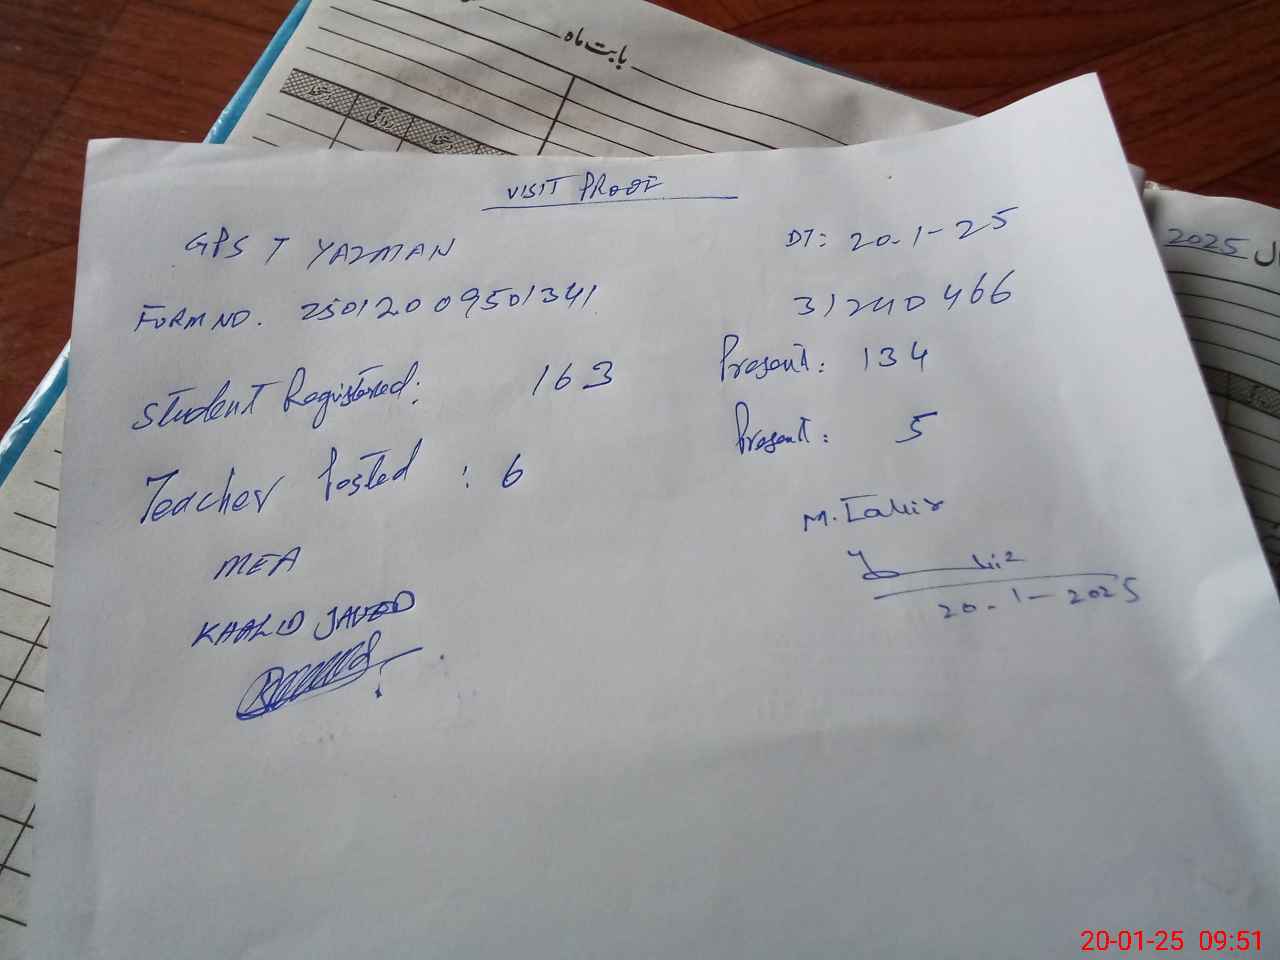 بابت ماہ
دستخط
روانگی
دستخط
VISIT PROOF
GPS T YAZMAN DT: 20-1-25
2025
FORM NO. 25012009501341 31240466
Student Registered: 163 Present: 134
Teacher Posted : 6 Present: 5
MEA M. Tahir
KHALID JAVED
20-1-2025
20-01-25 09:51